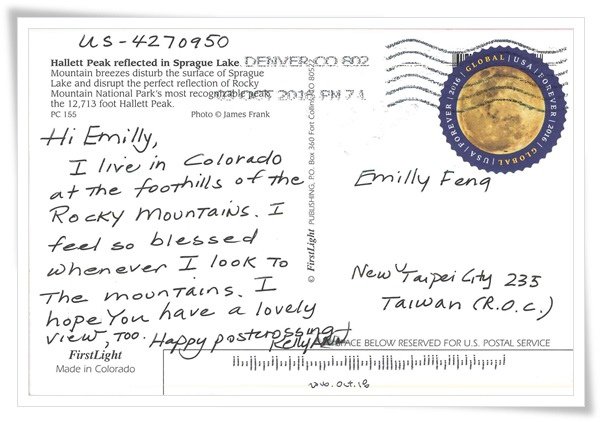 US-4270950
Hallett Peak reflected in Sprague Lake.
Mountain breezes disturb the surface of Sprague
Lake and disrupt the perfect reflection of Rocky
Mountain National Park's most recognizable peak,
the 12,713 foot Hallett Peak.
PC 155 Photo © James Frank
DENVER CO 802
2018 PM 7 1
GLOBAL | USA | FOREVER | 2016 | GLOBAL | USA | FOREVER | 2016
Hi Emilly,
I live in Colorado
at the foothills of the
Rocky Mountains. I
feel so blessed
whenever I look to
The mountains. I
hope You have a lovely
view, too. Happy postcrossing
Kelly
© FirstLight PUBLISHING, P.O. Box 360 Fort Collins, CO 80522
Emilly Feng
New Taipei City 235
Taiwan (R.O.C.)
FirstLight
Made in Colorado
SPACE BELOW RESERVED FOR U.S. POSTAL SERVICE